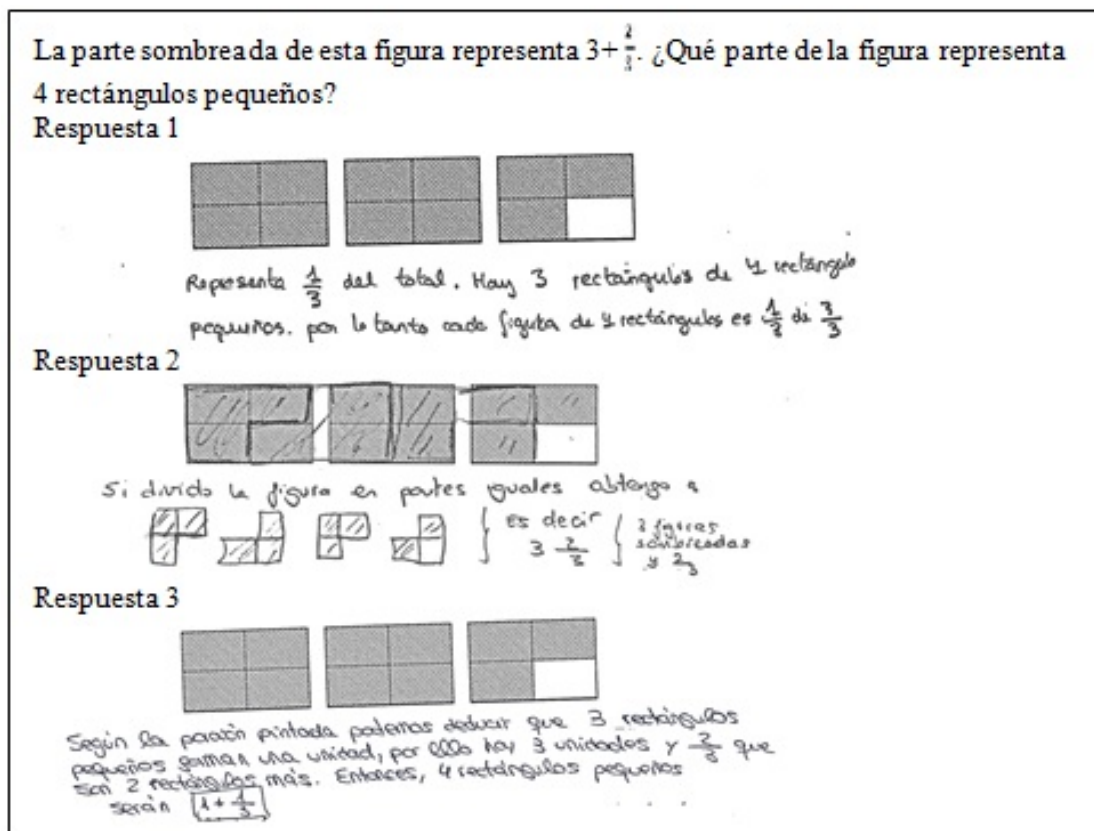 La parte sombreada de esta figura representa 3+ 2/3. ¿Qué parte de la figura representa
4 rectángulos pequeños?
Respuesta 1
Representa 1/3 del total. Hay 3 rectángulos de 4 rectángulo
pequeños. por lo tanto cada figura de 4 rectángulos es 1/3 de 3/3
Respuesta 2
Si divido la figura en partes iguales obtengo
es decir
3 2/3
3 figuras
sombreadas
y 2/3
Respuesta 3
Según la porción pintada podemos deducir que 3 rectángulos
pequeños forman una unidad, por ello hay 3 unidades y 2/3 que
son 2 rectángulos más. Entonces, 4 rectángulos pequeños
serán 1 + 1/3